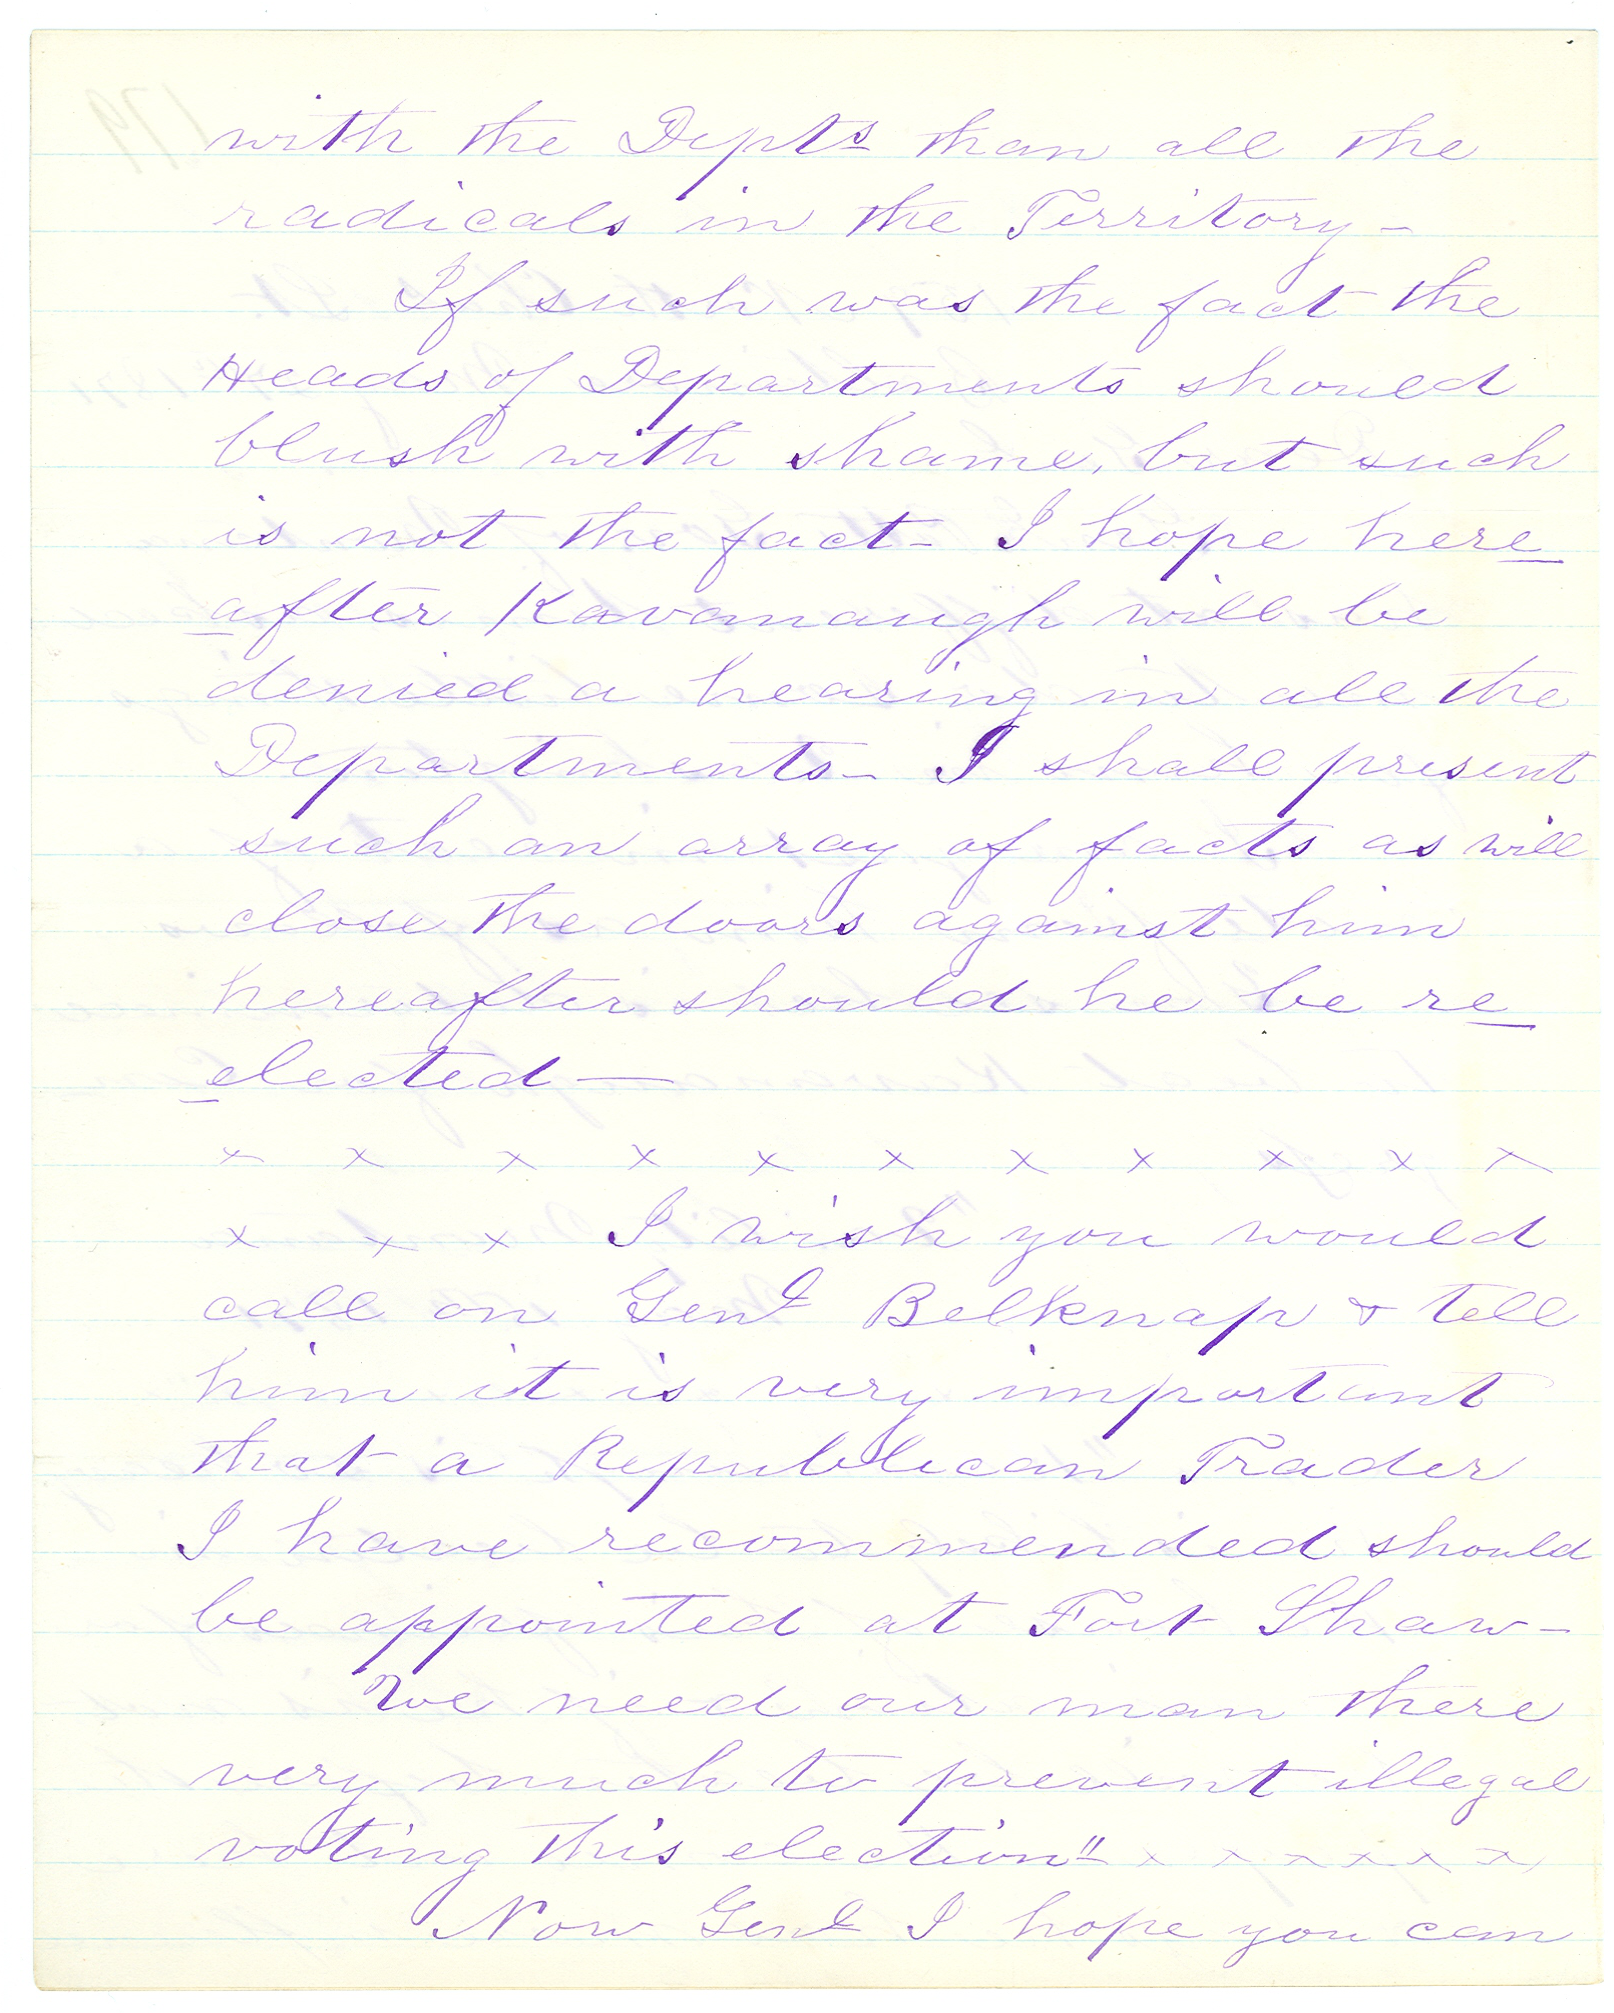 with the Depts than all the
radicals in the Territory –
If such was the fact the
Heads of Departments should
blush with shame, but such
is not the fact – I hope here
after Kavanaugh will be
denied a hearing in all the
Departments – I shall present
such an array of facts as will
close the doors against him
hereafter should he be re
elected —
x x x x x x x x x x x
x x x I wish you would
call on Genl Belknap & tell
him it is very important
that a Republican Trader
I have recommended should
be appointed at Fort Shaw –
We need our man there
very much to prevent illegal
voting this election" x x x x x x
Now Genl I hope you can